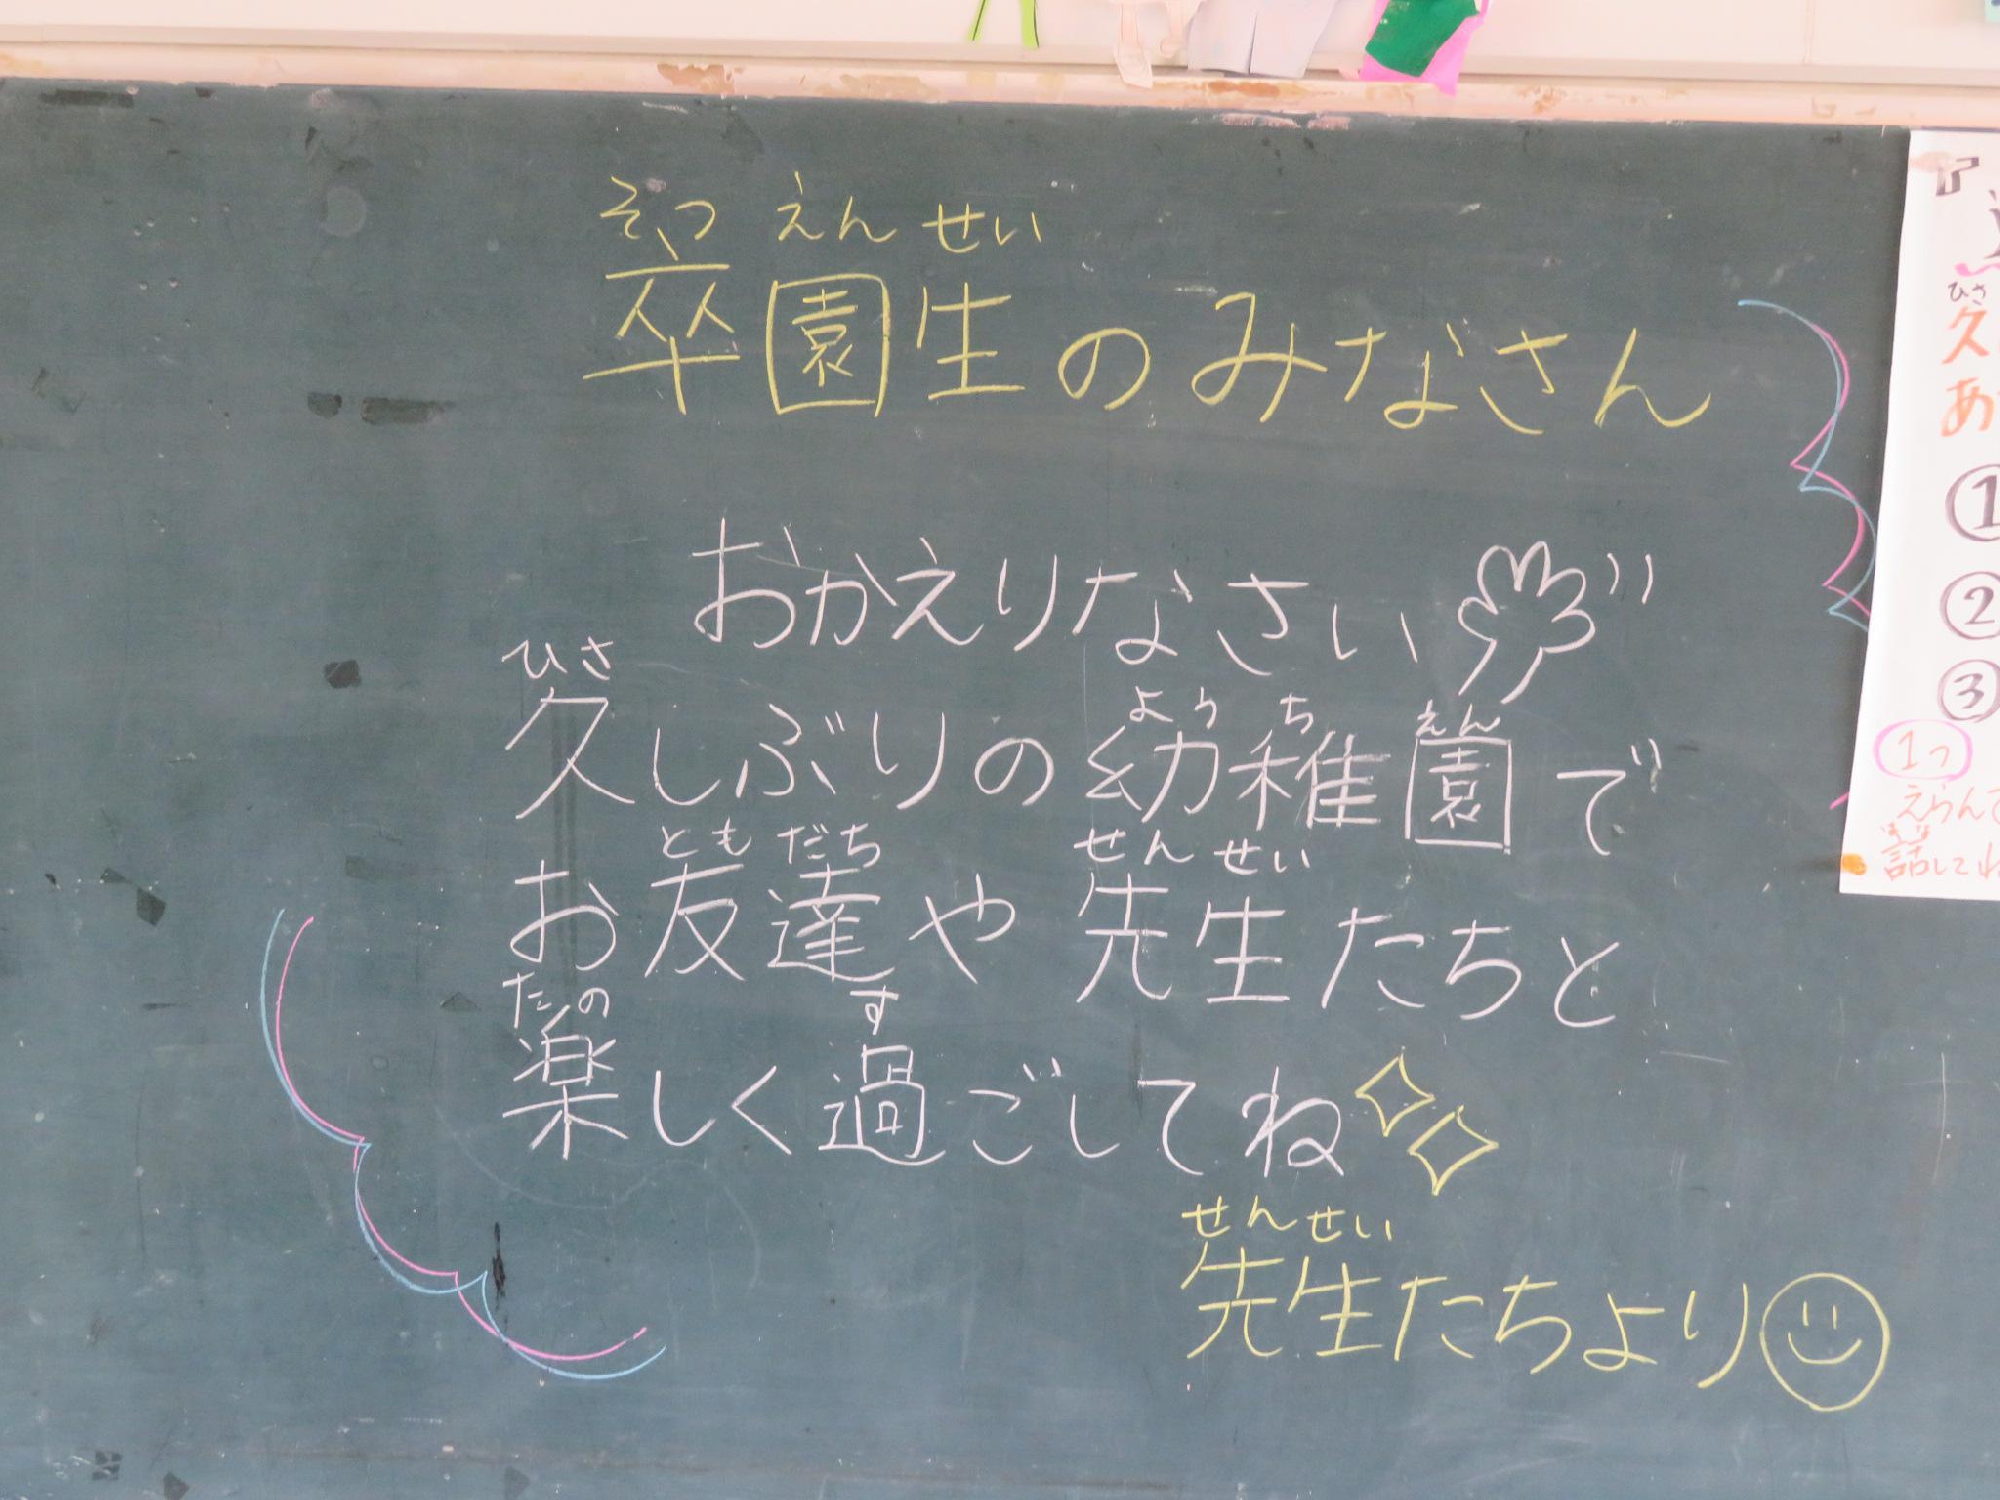 そつ えん せい
卒園生のみなさん
おかえりなさい
ひさ
久しぶりの幼稚園で
よう ち えん
とも だち せん せい
お友達や先生たちと
たの す
楽しく過ごしてね
せんせい
先生たちより
ひさ
久
あ
①
②
③
1つ
えらんで
話してね